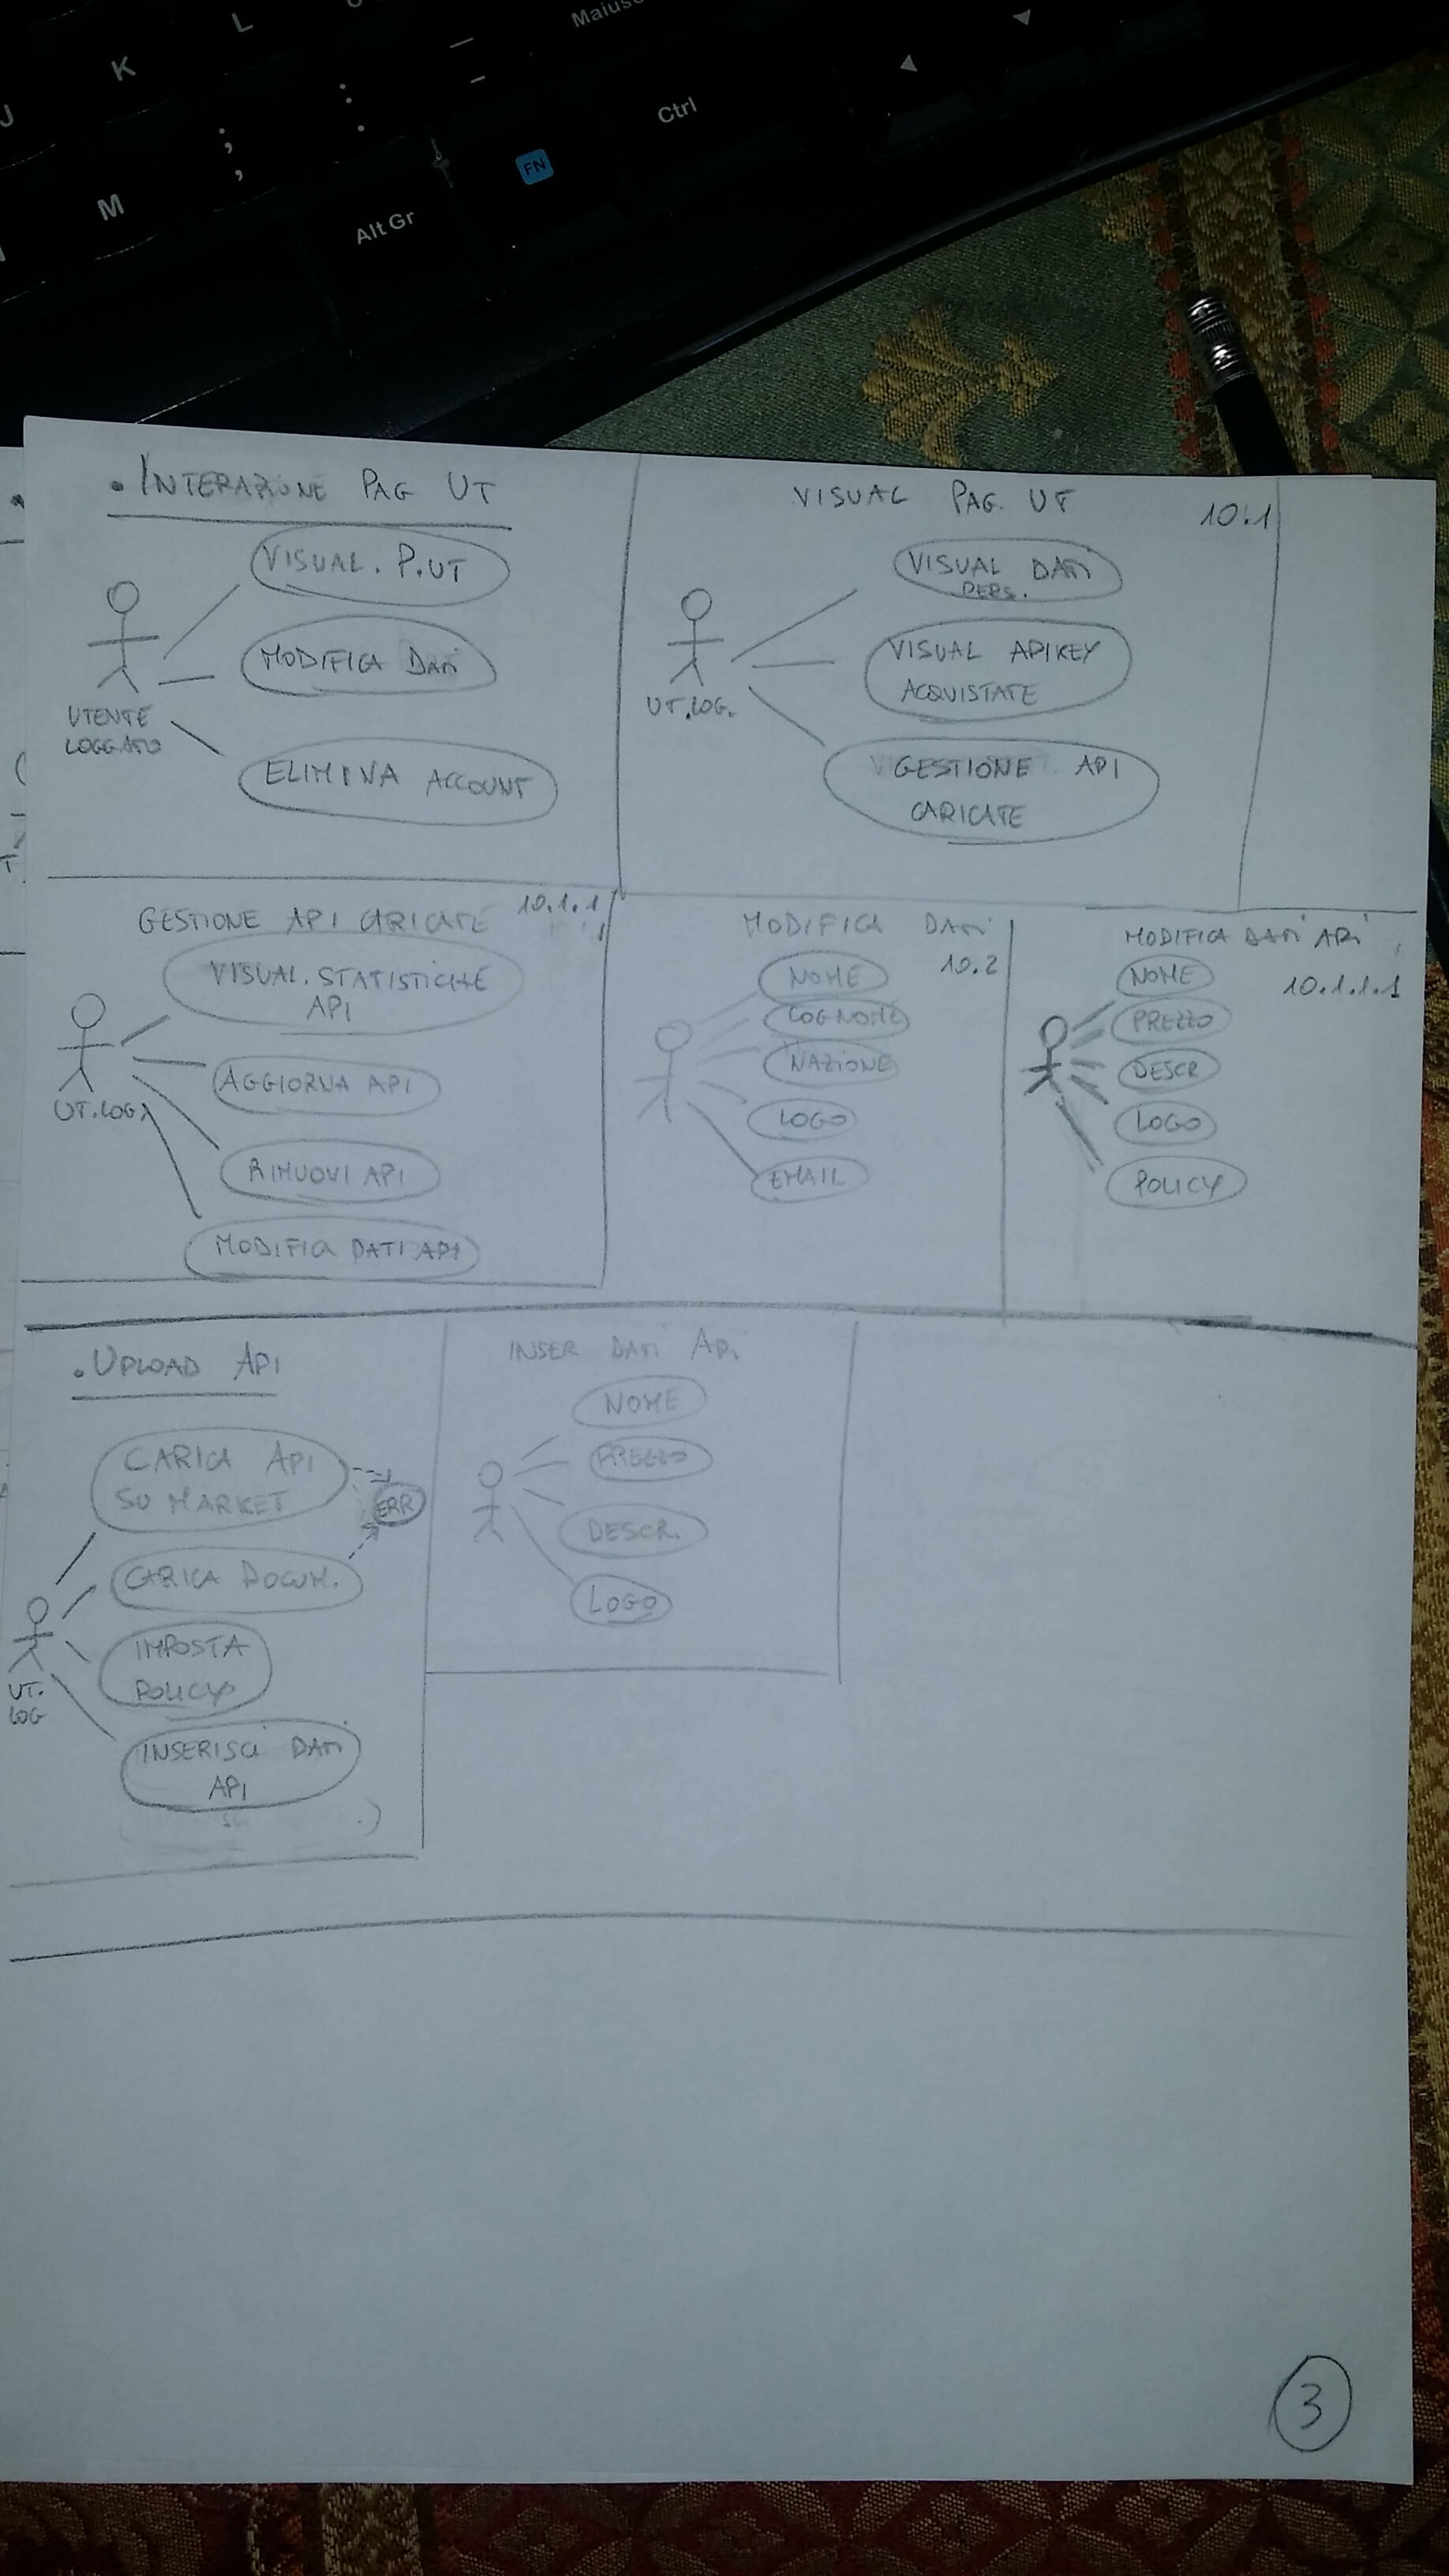 J
K
L
M
;
,
:
.
—
-
Maiusc
Alt Gr
FN
Ctrl
• INTERAZIONE PAG UT
VISUAL. P.UT
MODIFICA DATI
ELIMINA ACCOUNT
UTENTE
LOGGATO
VISUAL PAG. UT
10.1
VISUAL DATI
PERS.
VISUAL APIKEY
ACQUISTATE
GESTIONE API
CARICATE
UT.LOG.
GESTIONE API CARICATE
10.1.1
VISUAL. STATISTICHE
API
AGGIORNA API
RIMUOVI API
MODIFICA DATI API
UT.LOG
MODIFICA DATI
10.2
NOME
COGNOME
NAZIONE
LOGO
EMAIL
MODIFICA DATI API
10.1.1.1
NOME
PREZZO
DESCR
LOGO
POLICY
• UPLOAD API
CARICA API
SU MARKET
ERR
CARICA DOCUM.
IMPOSTA
POLICY
INSERISCI DATI
API
UT.
LOG
INSER DATI API
NOME
PREZZO
DESCR.
LOGO
3